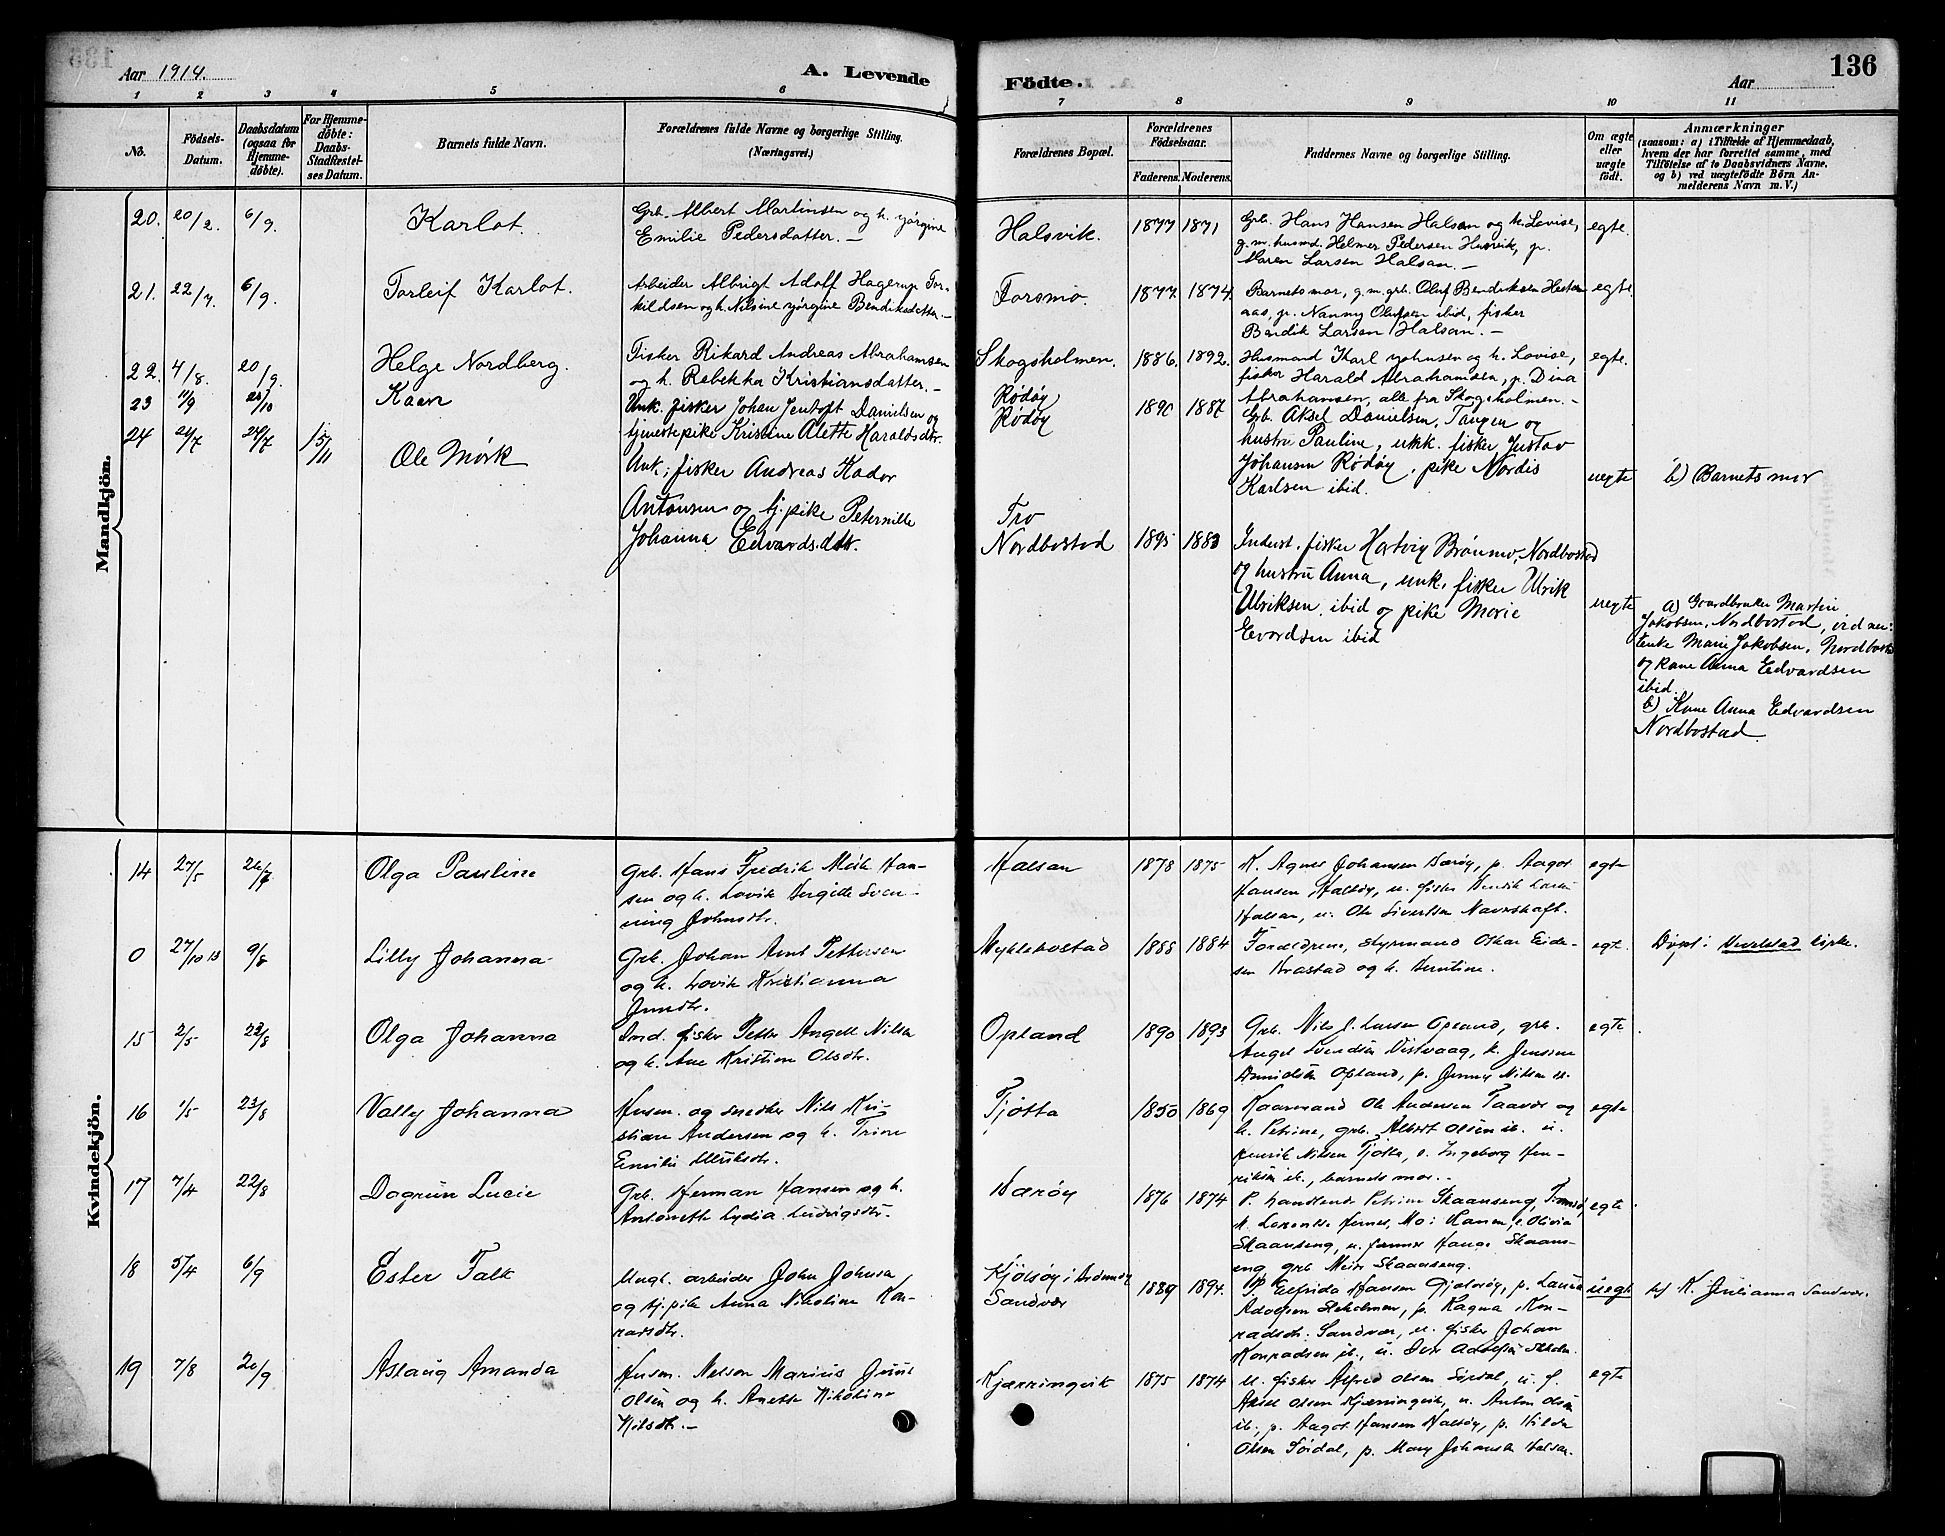 Aar 1914.
A. Levende
Födte.
Aar
136
1 2 3 4 5 6 7 8 9 10 11
No.
Födsels-
Datum.
Daabsdatum
(ogsaa for
Hjemme-
döbte).
For Hjemme-
döbte:
Daabs-
Stadfæstel-
ses Datum.
Barnets fulde Navn.
Forældrenes fulde Navne og borgerlige Stilling.
(Næringsvei.)
Forældrenes Bopæl.
Forældrenes
Födselsaar.
Faderens. Moderens.
Faddernes Navne og borgerlige Stilling.
Om ægte
eller
uægte
födt.
Anmærkninger
(saasom: a) i Tilfælde af Hjemmedaab,
hvem der har forrettet samme, med
Tilföielse af to Daabsvidners Navne,
og b) ved uægtefödte Börn An-
melderens Navn m. V.)
Mandkjön.
20. 20/2. 6/9. Karlot.
Grb. Albert Martinsen og h. Jørgine
Emilie Pedersdatter. —
Halsvik. 1877 1871
Grb. Hans Hansen Halsan og h. Lovise,
g.m. husmd. Helmer Pedersen p.
Maren Larsen Halsan. —
egte.
21. 22/7. 6/9. Torleif Karlot.
Arbeider Albrigt Adolf Hagerup Tor-
kildsen og h. Nilsine Jørgine Bendiksdatter. —
Forsmo. 1877. 1874.
Barnets mor, g.m. grb. Oluf Bendiksen
aas, p. Nanny Olufsen ibid, fisker
Bendik Larsen Halsan. —
egte.
22. 4/8. 20/9. Helge Nordberg.
Fisker Rikard Andreas Abrahamsen
og h. Rebekka Kristiansdatter. —
Skogsholmen. 1886. 1892.
Husmand Karl Johnsen og h. Lovise,
fisker Harald Abrahamsen, p. Dina
Abrahamsen, alle fra Skogsholmen. —
egte.
23 11/9 Kaare
Unk. fisker Johan Jentoft Danielsen og
tjenestepike Kristine Alette Haraldsdtr.
Rødøy
Rødøy
1890 1887
Grb. Aksel Danielsen, Tangen og
hustru Pauline, unk. fisker Gustav
Johansen Rødøy, pike Nordis
Karlsen ibid.
uegte b) Barnets mor
24 24/7 15/11 Ole Mørk
Unk. fisker Andreas Kador
Antonsen og tj. pike Peternille
Johanna Edvardsdtr.
Tro
Nordbostad 1895 1883
Inderst. fisker Hartvig Brönmo, Nordbostad
og hustru Anna, unk. fisker Ulrik
Ulriksen ibid og pike Marie
Evardsen ibid
uegte
a) Gaardbruker Martin
Jakobsen, Nordbostad, vidner:
enke Marie Jakobsen, Nordbostad
og kone Anna Edvardsen
ibid.
b) Kone Anna Edvardsen
Nordbostad.
Kvindekjön.
14 27/5 26/7 Olga Pauline
Grb. Hans Fredrik Meik Han-
sen og h. Lovik Bergitte Sven-
ning Johnsdtr.
Halsan 1878 1875
K. Agnes Johansen Dærøy, p. Aagot
Hansen Halsøy, u. fisker Bendik Larsen
Halsan, u. Ole Sivertsen Navnshaft.
egte
0 27/10 13 9/8 Lilly Johanna
Grb. Johan Arnt Pettersen
og h. Lovik Kristianna
Myklebostad 1888 1884
Forældrene, styrmand Oskar Eide-
sen og h. Berntine.
egt. Døpt i kirke.
15 2/5 23/8 Olga Johanna
Ind. fisker Petter Angell Nilsen
og h. Ane Kristine Olsdtr.
Opland 1890 1893
Grb. Nils J. Larsen Opland, grb.
Angel Svendsen Vistvaag, k. Jensine
Opland, p. Jenny Nilsen ib.
egte
16 1/5 23/8 Vally Johanna
Husm. og snedker Nils Kri-
stian Andersen og h. Trine
Emilie Ulriksdtr.
Tjøtta 1850 1869
Kaarmand Ole Andersen Taavær og
h. Petrine, grb. Albert Olsen ib. u.
Henrik Nilsen Tjøtta, p. Ingeborg Hen-
riksen ib., barnets mor.
egte
17 7/4 22/8 Dagrun Lucie
Grb. Herman Hansen og h.
Antonette Lydia Ludvigsdtr.
Dærøy 1876 1874
P. handlende Petrine Skaanseng,
Mo i Ranen, Olivia
Skaanseng, u. Hauge Skaans-
eng, grb. Meier Skaanseng.
egte
18 5/4 6/9 Ester Falk
Ungk. arbeider John Johnsen
og tj. pike Anna Nikoline Kon-
radsdtr.
Kjölsöy i Brønnøy
Sandvær
1889 1894.
P. Elfrida Hansen p. Laura
Adolfsen p. Ragna Kon-
radsdtr. Sandvær, u. fisker Johan
Konradsen ib., u.
uegt K. Julianna Sandvær.
19 7/8 20/9 Aslaug Amanda
Husm. Nelson Marius Juul
Olsen og h. Anette Nikoline
Nilsdtr. —
Kjærringvik 1875 1874
u. fisker Alfred Olsen u. f.
Aksel Olsen Kjærringvik, u. Anton Olsen
ib., p. Aagot Hansen Halsøy, p. Hilda
Olsen p. Mary Johansen Halsan.
egte